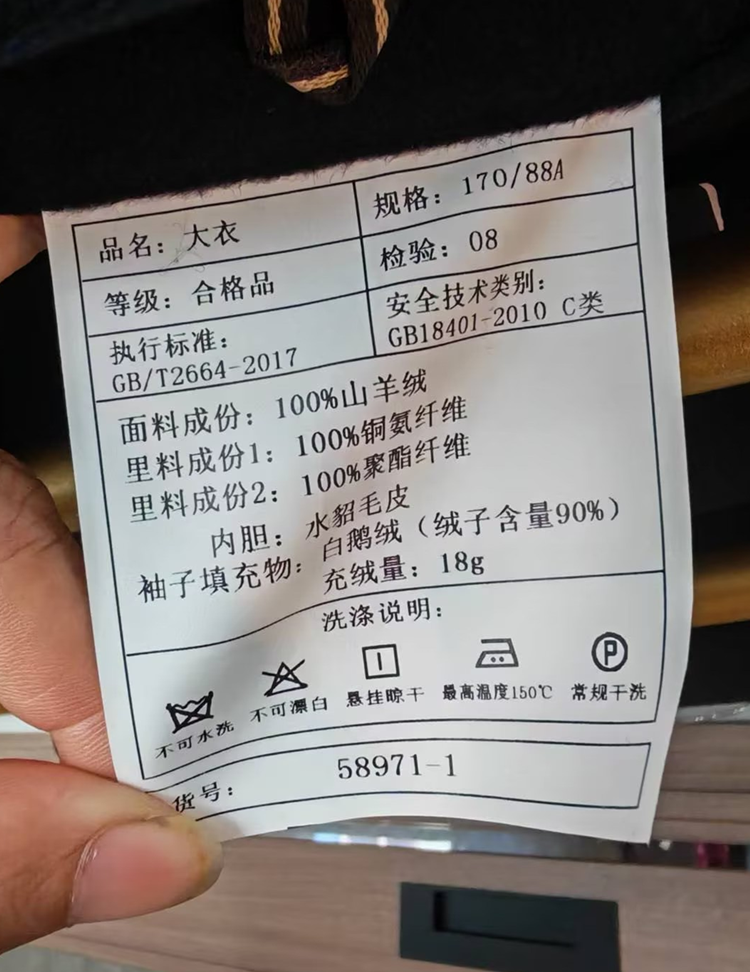 品名：大衣
规格：170/88A
等级：合格品
检验：08
执行标准：
GB/T2664-2017
安全技术类别：
GB18401-2010 C类
面料成份：100%山羊绒
里料成份1：100%铜氨纤维
里料成份2：100%聚酯纤维
内胆：水貂毛皮
袖子填充物：白鹅绒（绒子含量90%）
充绒量：18g
洗涤说明：
P
不可水洗 不可漂白 悬挂晾干 最高温度150℃ 常规干洗
货号：58971-1